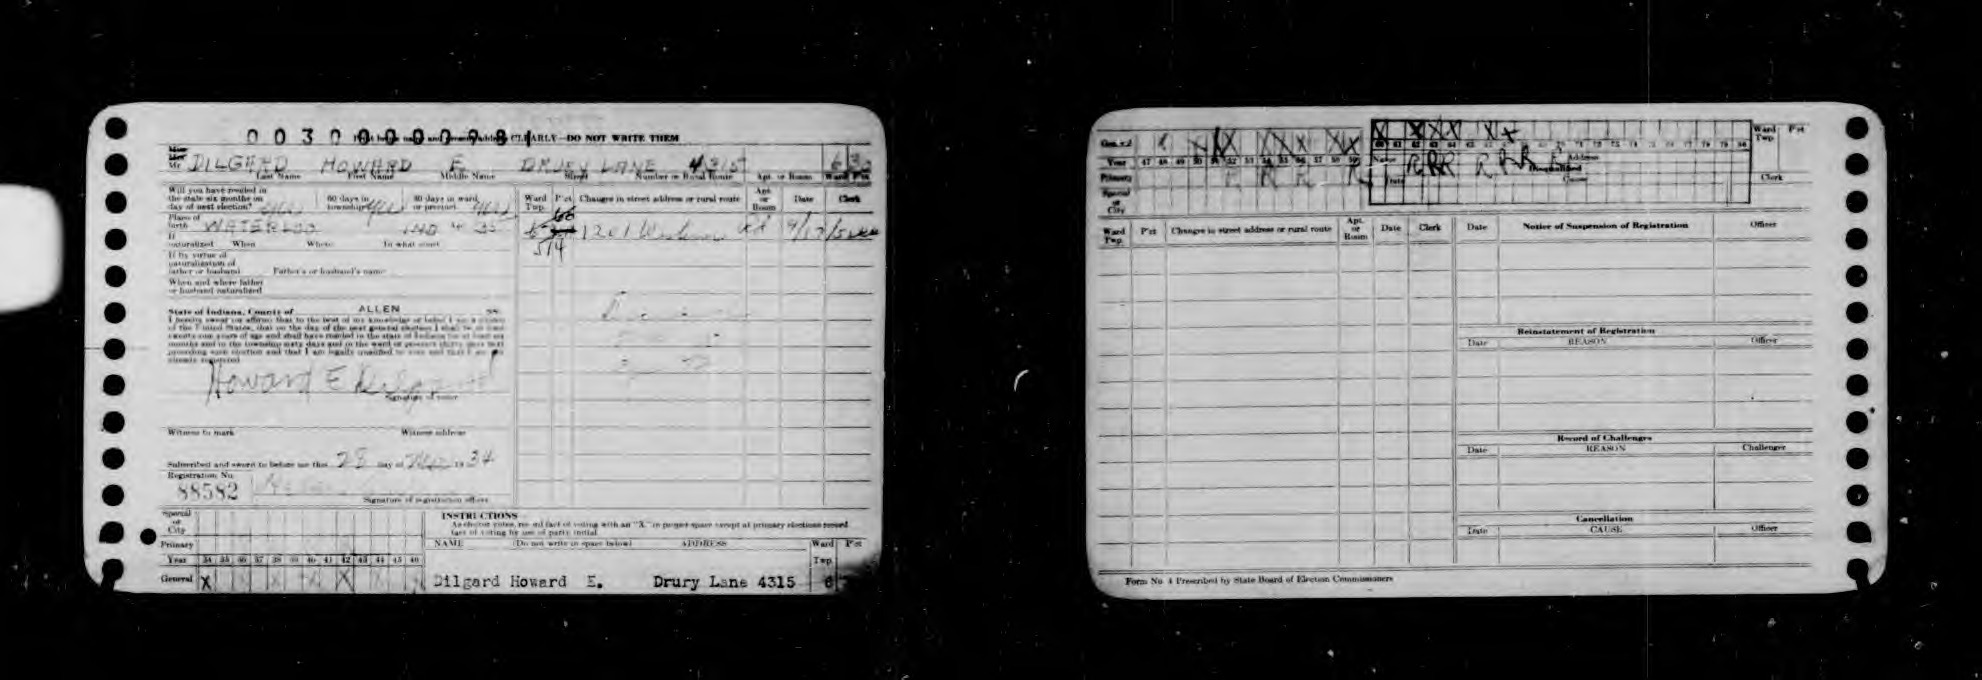 0030000098
CLEARLY—DO NOT WRITE THEM
Mr DILGARD HOWARD E. DRURY LANE 4315 6
Last Name First Name Middle Name Street Number or Rural Route Apt. or Room Ward P'ct
Will you have resided in
the state six months on 60 days in 30 days in ward
day of next election? yes township? yes or precinct yes
Ward Twp. P'ct Changes in street address or rural route Apt. or Room Date Clerk
Place of
birth WATERLOO IND
If
naturalized When Where In what court
514
If by virtue of
naturalization of
father or husband Father's or husband's name
When and where father
or husband naturalized
State of Indiana, County of ALLEN ss:
I hereby swear or affirm that to the best of my knowledge or belief I am a citizen
of the United States, that on the day of the next general election I shall be at least
twenty-one years of age and shall have resided in the state of Indiana for at least six
months and in the township sixty days and in the ward or precinct thirty days next
preceding such election and that I am legally qualified to vote and that I am not
already registered
Howard E Dilgard
Signature of voter
Witness to mark Witness address
Subscribed and sworn to before me this 28 day of 19 34
Registration No.
88582
Signature of registration officer
Special
or
City
Primary
Year 34 35 36 37 38 39 40 41 42 43 44 45 46
General X X
INSTRUCTIONS
As elector votes, record fact of voting with an "X" in proper space except at primary elections record
fact of voting by use of party initial
NAME (Do not write in space below) ADDRESS Ward Twp. P'ct
Dilgard Howard E. Drury Lane 4315 6
General
Year 47 48 49 50 51 52 53 54 55 56 57 58 59
Primary R R R R
Special
or
City
60 61 62 63 64 65 66 67 68 69 70 71 72 73 74 75 76 77 78 79 80
Name Address
R R R R R R
Date Disqualified
Cause
Ward Twp. P'ct
Clerk
Ward Twp. P'ct Changes in street address or rural route Apt. or Room Date Clerk
Date Notice of Suspension of Registration Officer
Reinstatement of Registration
Date REASON Officer
Record of Challenges
Date REASON Challenger
Cancellation
Date CAUSE Officer
Form No. 4 Prescribed by State Board of Election Commissioners